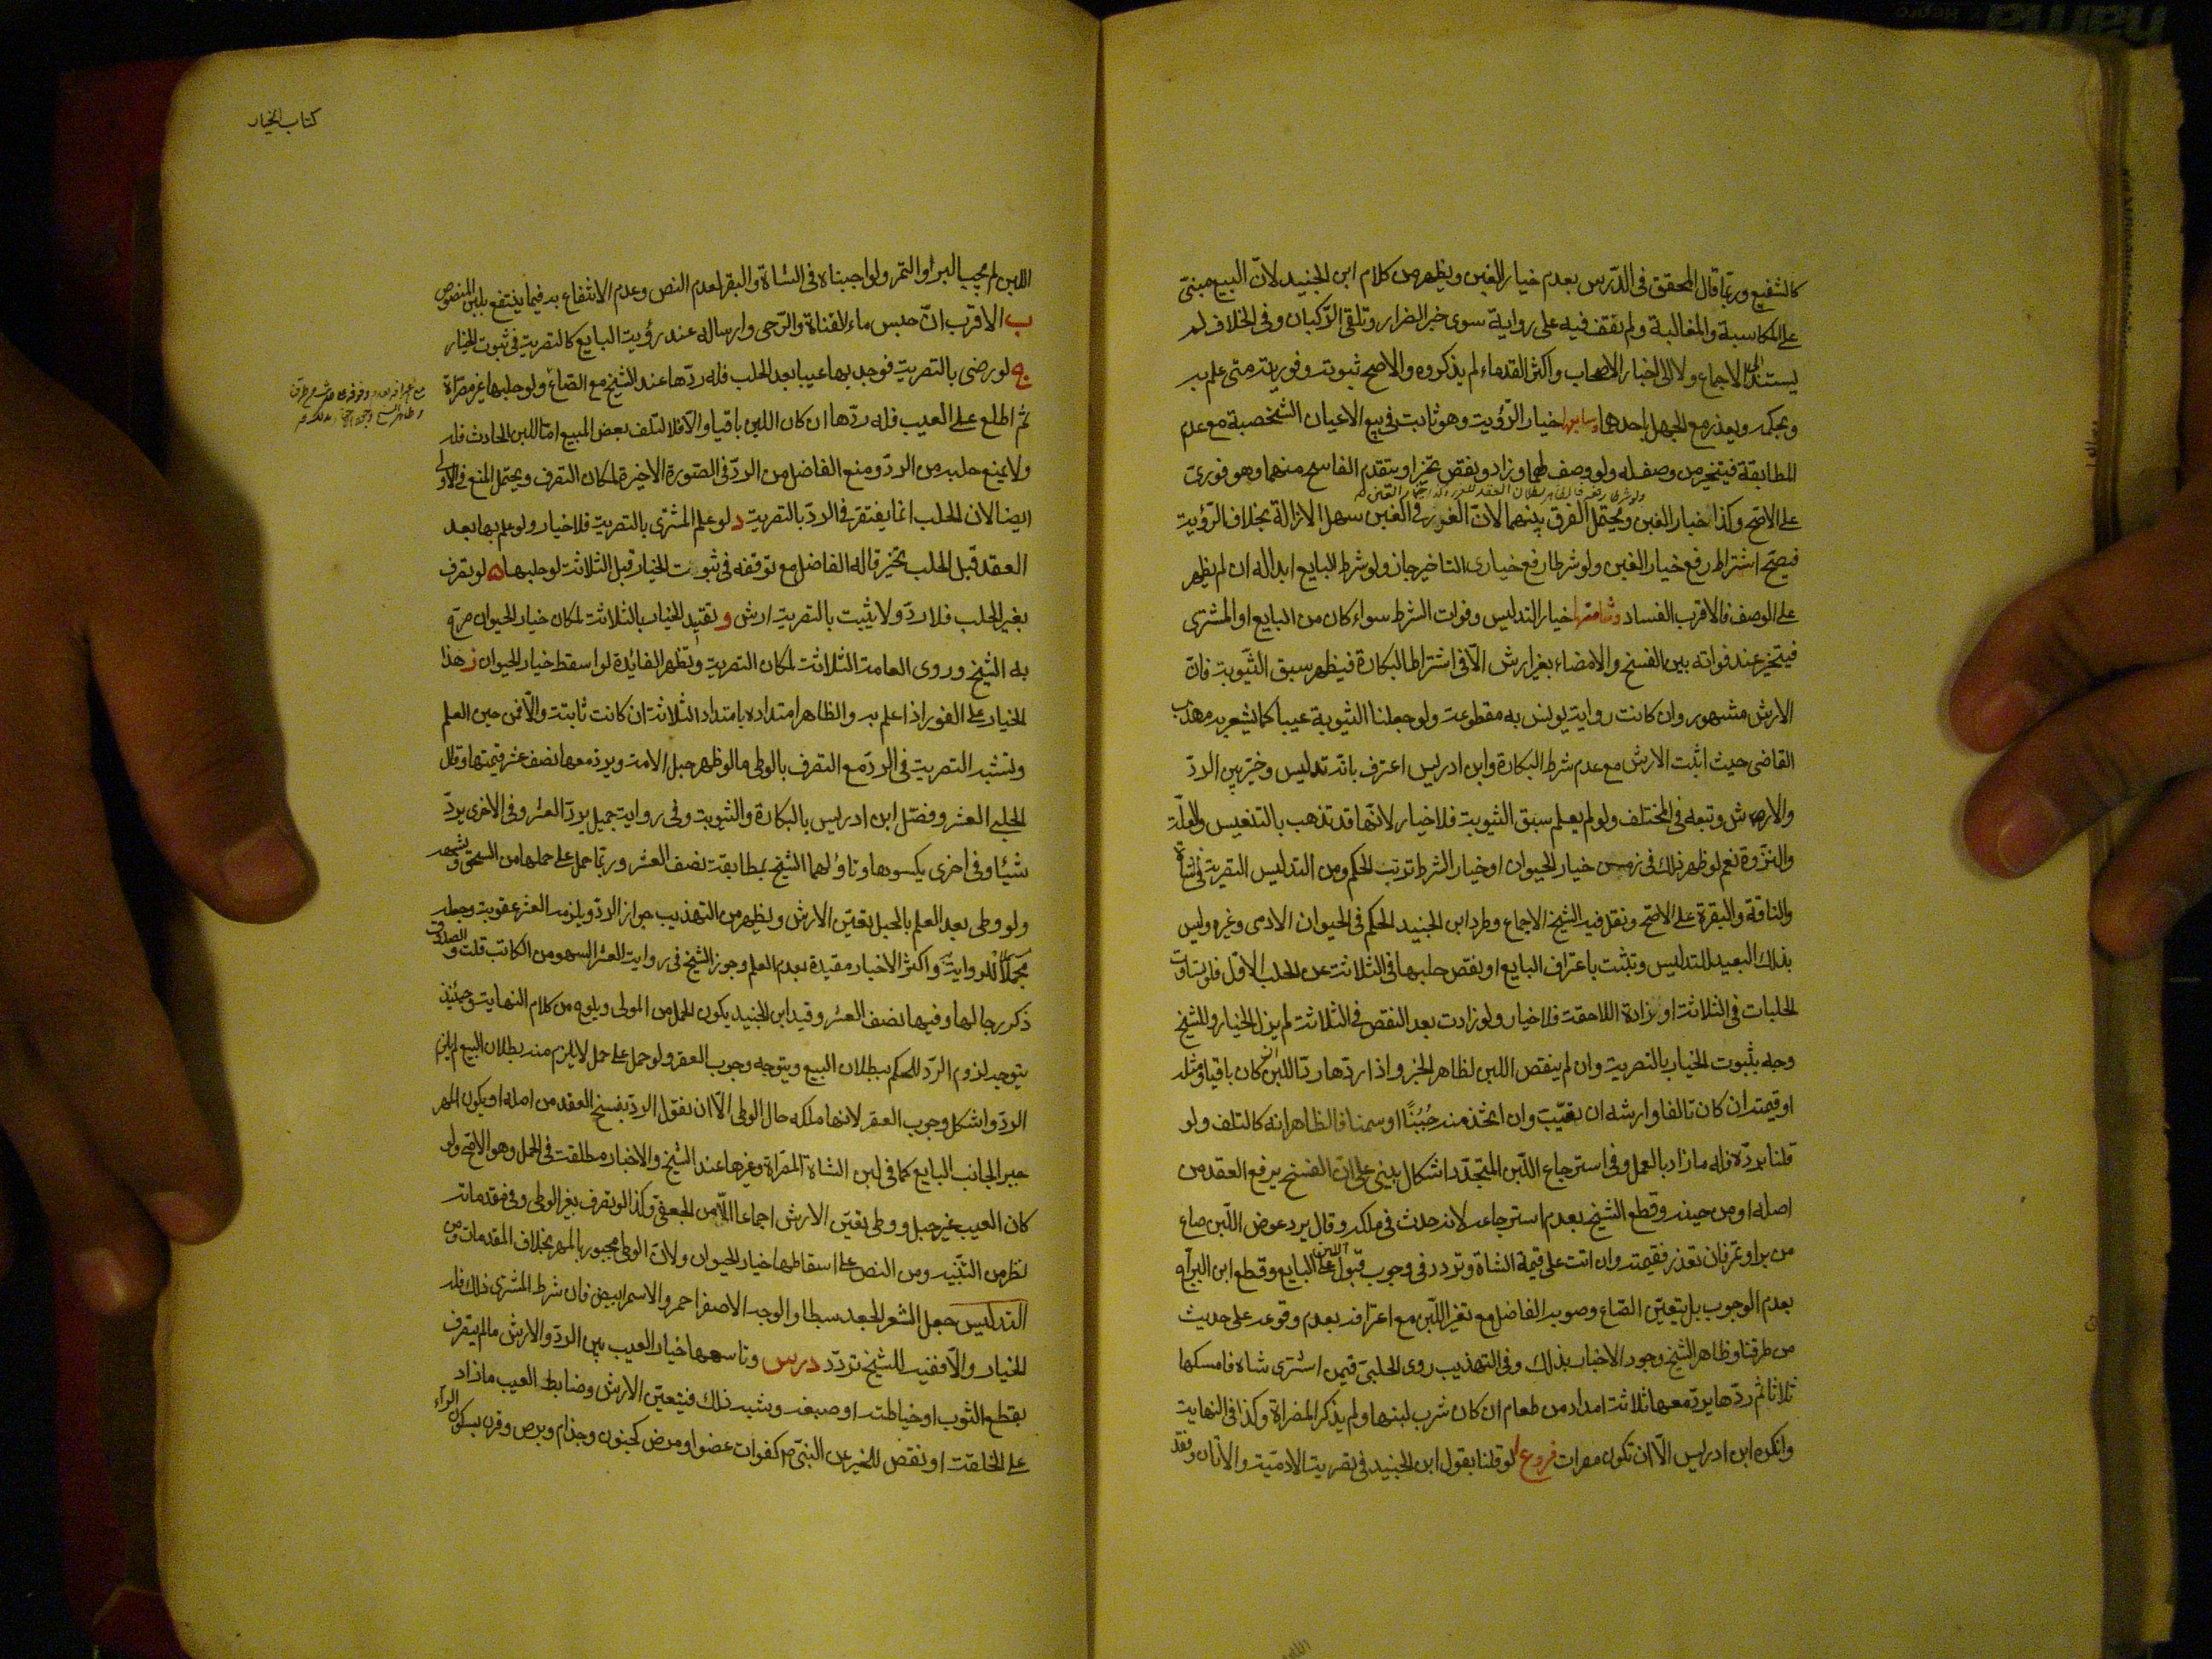 كالشفيع وربما قال المحقق في الدرس بعدم خيار الغبن ويظهر من كلام ابن الجنيد لان البيع مبنى
على المكاسبة والمغالبة ولم نقف فيه على رواية سوى خبر الضرار وتلقى الركبان وفى الخلاف لم
يستند الى الاجماع ولا الى اخبار الاصحاب واكثر القدماء لم يذكروه والاصح ثبوته وفوريته متى علم به
وبحكمه ويعذر مع الجهل باحدهما وسابعها خيار الرؤية وهو ثابت في بيع الاعيان الشخصية مع عدم
المطابقة فيتخير من وصف له ولو وصف لهما وزاد ونقص تخيرا ويتقدم الفاسخ منهما وهو فورى
على الاصح وكذا خيار الغبن ويحتمل الفرق بينهما لان الغرر في الغبن سهل الازالة بخلاف الرؤية
فيصح اشتراط رفع خيار الغبن ولو شرطا رفع خيارى التاخير جاز ولو شرط البايع ابداله ان لم يظهر
على الوصف فالاقرب الفساد وثامنها خيار التدليس وفوات الشرط سواء كان من البايع او المشترى
فيتخير عند فواته بين الفسخ والامضاء بغير ارش الا في اشتراط البكارة فيظهر سبق الثيوبة فان
الارش مشهور وان كانت رواية يونس به مقطوعة ولو جعلنا الثيوبة عيبا كما يشعر به مهذب
القاضى حيث اثبت الارش مع عدم شرط البكارة وابن ادريس اعترف بانه تدليس وخير بين الرد
والارش وتبعه في المختلف ولو لم يعلم سبق الثيوبة فلا خيار لانها قد تذهب بالتعنيس والعلة
والنزوة نعم لو ظهر ذلك في زمن خيار الحيوان او خيار الشرط ترتب الحكم ومن التدليس التصرية في الشاة
والناقة والبقرة على الاصح ونقل فيه الشيخ الاجماع وطرد ابن الجنيد الحكم في الحيوان الادمى وغيره وليس
بذلك البعيد للتدليس وتثبت باعتراف البايع او نقص حلبها في الثلاثة عن الحلب الاول فلو تساوت
الحلبات في الثلاثة او زادة اللاحقة فلا خيار ولو زادت بعد النقص في الثلاثة لم يزل الخيار وللشيخ
وجه بثبوت الخيار بالتصرية وان لم ينقص اللبن لظاهر الخبر واذا ردها رد اللبن ان كان باقيا ومثله
او قيمته ان كان تالفا وارشه ان تعيب وان اتخذ منه جبنا او سمنا فالظاهر انه كالتلف ولو
قلنا برده فله ما زاد بالعمل وفى استرجاع اللبن المتجدد اشكال يبنى على ان الفسخ يرفع العقد من
اصله او من حينه وقطع الشيخ بعدم استرجاعه لانه حدث في ملكه وقال يرد عوض اللبن صاع
من بر او تمر فان تعذر فقيمته وان اتت على قيمة الشاة وتردد في وجوب قبول اللبن على البايع وقطع ابن البراج
بعدم الوجوب بل يتعين الصاع وصوبه الفاضل مع تغير اللبن مع اعترافه بعدم وقوعه على حديث
من طرقنا وظاهر الشيخ وجود الاخبار بذلك وفى التهذيب روى الحلبى فيمن اشترى شاة فامسكها
ثلاثا ثم ردها يرد معها ثلاثة امداد من طعام ان كان شرب لبنها ولم يذكر المصراة وكذا في النهاية
وانكره ابن ادريس الا ان تكون مصرات فروع ا لو قلنا بقول ابن الجنيد في تصرية الادمية والاتان وفقد
كتاب الخيار
اللبن لم يجب البر او التمر ولو اوجبناه في الشاة والبقر لعدم النص وعدم الانتفاع به فيما ينتفع بلبن المنصوص
ب الاقرب ان حبس ماء القناة والرحى وارساله عند رؤية البايع كالتصرية في ثبوت الخيار
ج لو رضى بالتصرية فوجد بها عيبا بعد الحلب فله ردها عند الشيخ مع الصاع ولو حلبها غير مصراة
ثم اطلع على العيب فله ردها ان كان اللبن باقيا والا فلا لتلف بعض المبيع اما اللبن الحادث فله
ولا يمنع حلبه من الرد ومنع الفاضل من الرد في الصورة الاخيرة لمكان التصرف ويحتمل المنع في الاولى
ايضا لان الحلب انما يغتفر في الرد بالتصرية د لو علم المشترى بالتصرية فلا خيار ولو علم بها بعد
العقد قبل الحلب تخير قاله الفاضل مع توقفه في ثبوت الخيار قبل الثلاثة لو حلبها ه لو تصرف
بغير الحلب فلا رد ولا يثبت بالتصرية ارش و تقييد الخيار بالثلاثة لمكان خيار الحيوان صرح
به الشيخ وروى العامة الثلاثة لمكان التصرية وتظهر الفائدة لو اسقط خيار الحيوان ز هذا
الخيار على الفور اذا علم به والظاهر امتداده بامتداد الثلاثة ان كانت ثابتة والا فمن حين العلم
وتشبه التصرية في الرد مع التصرف بالوطى ما لو ظهر حبل الامة ويرد معها نصف عشر قيمتها وقال
الحلبى العشر وفصل ابن ادريس بالبكارة والثيوبة وفى رواية جميل يرد العشر وفى الاخرى يرد
شيئا وفى اخرى يكسوها وتاولهما الشيخ بمطابقة نصف العشر وربما حمل على حملها من السحق وشبهه
ولو وطى بعد العلم بالحبل تعين الارش ويظهر من التهذيب جواز الرد ويلزمه العشر عقوبة وجعله
محملا للرواية واكثر الاخبار مقيدة بعدم العلم وجوز الشيخ في رواية العشر السهو من الكاتب قلت والصدوق
ذكر رجالها وفيها نصف العشر وقيد ابن الجنيد بكون الحمل من المولى ويلوح من كلام النهاية وحينئذ
يتوجه لزوم الرد للحكم ببطلان البيع ويتوجه وجوب العقر ولو حمل على حمل لا يلزم منه بطلان البيع لم يلزم
الرد واشكل وجوب العقر لانها ملكه حال الوطى الا ان نقول الرد يفسخ العقد من اصله او يكون المهر
جبرا لجانب البايع كما في لبن الشاة المصراة وغيرها عند الشيخ والاخبار مطلقة في الحمل وهو الاصح ولو
كان العيب غير حبل ووطى تعين الارش اجماعا الا من الجعفى وكذا لو تصرف بغير الوطى وفى مقدماته
نظر من التنبيه ومن النص على اسقاطها خيار الحيوان ولان الوطى مجبور بالمهر بخلاف المقدمات ومن
التدليس جعل الشعر الجعد سبطا والوجه الاصفر احمر والاسمر ابيض فان شرط المشترى ذلك فله
الخيار والا ففيه للشيخ تردد درس وتاسعها خيار العيب بين الرد والارش ما لم يتصرف
بقطع الثوب او خياطته او صبغه وشبه ذلك فيتعين الارش وضابط العيب ما زاد
على الخلقة او نقص للخبر عن النبي ص كفوات عضو او مرض كجنون وجذام وبرص وقرن بسكون الراء